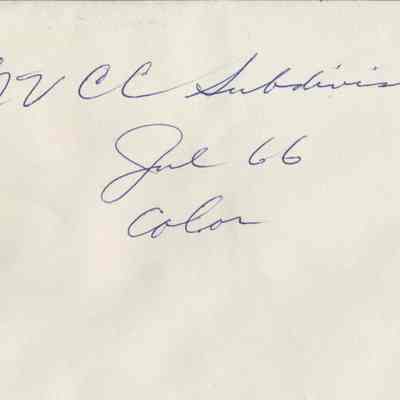 CC Subdivis
Jul 66
Color